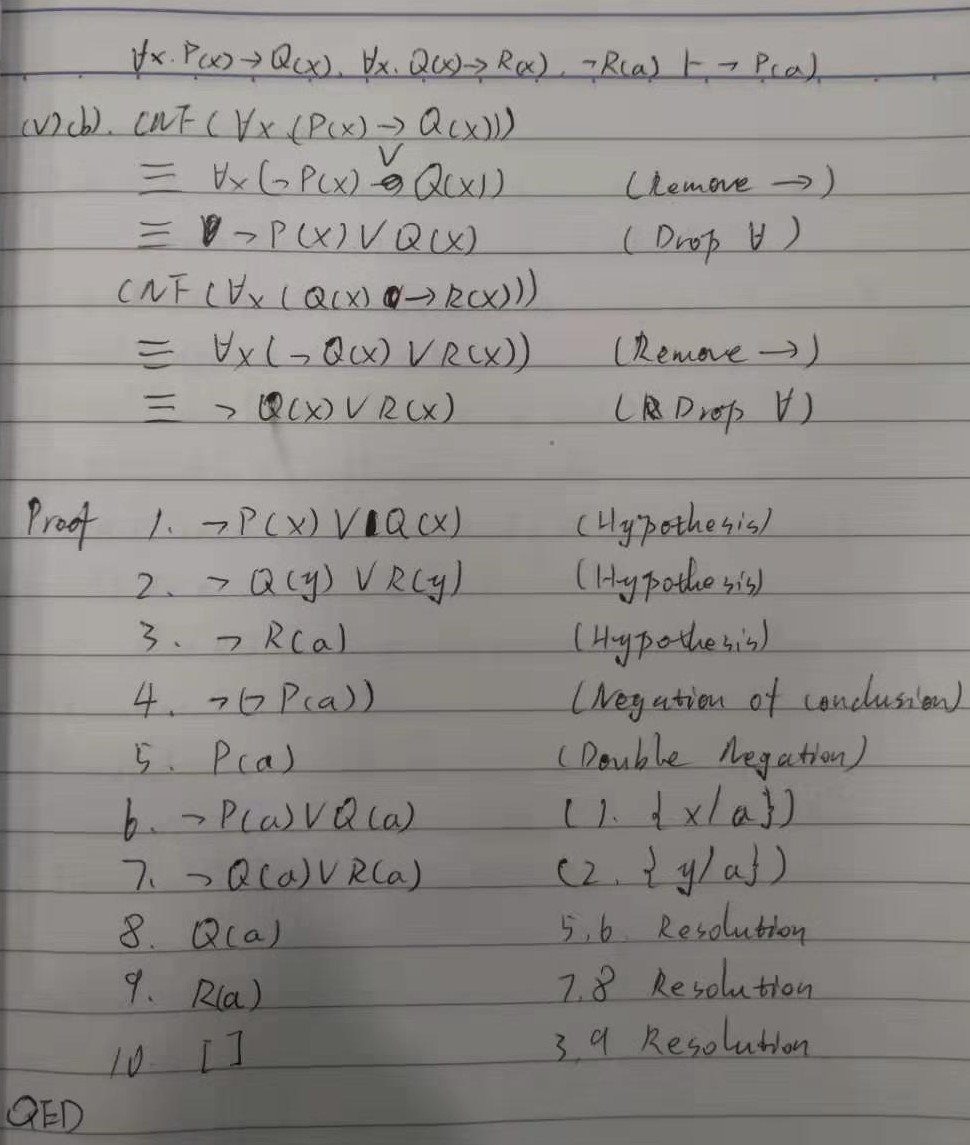 ∀x. P(x) → Q(x), ∀x. Q(x) → R(x), ¬R(a) ⊢ ¬ P(a)
(V)(b). CNF (∀x (P(x) → Q(x)))
≡ ∀x (¬ P(x) ∨ Q(x)) (Remove →)
≡ ¬ P(x) ∨ Q(x) (Drop ∀)
CNF (∀x (Q(x) → R(x)))
≡ ∀x (¬ Q(x) ∨ R(x)) (Remove →)
≡ ¬ Q(x) ∨ R(x) (Drop ∀)
Proof 1. ¬ P(x) ∨ Q(x) (Hypothesis)
2. ¬ Q(y) ∨ R(y) (Hypothesis)
3. ¬ R(a) (Hypothesis)
4. ¬(¬ P(a)) (Negation of conclusion)
5. P(a) (Double Negation)
6. ¬ P(a) ∨ Q(a) (1. {x/a})
7. ¬ Q(a) ∨ R(a) (2. {y/a})
8. Q(a) 5,6 Resolution
9. R(a) 7,8 Resolution
10. [] 3,9 Resolution
QED